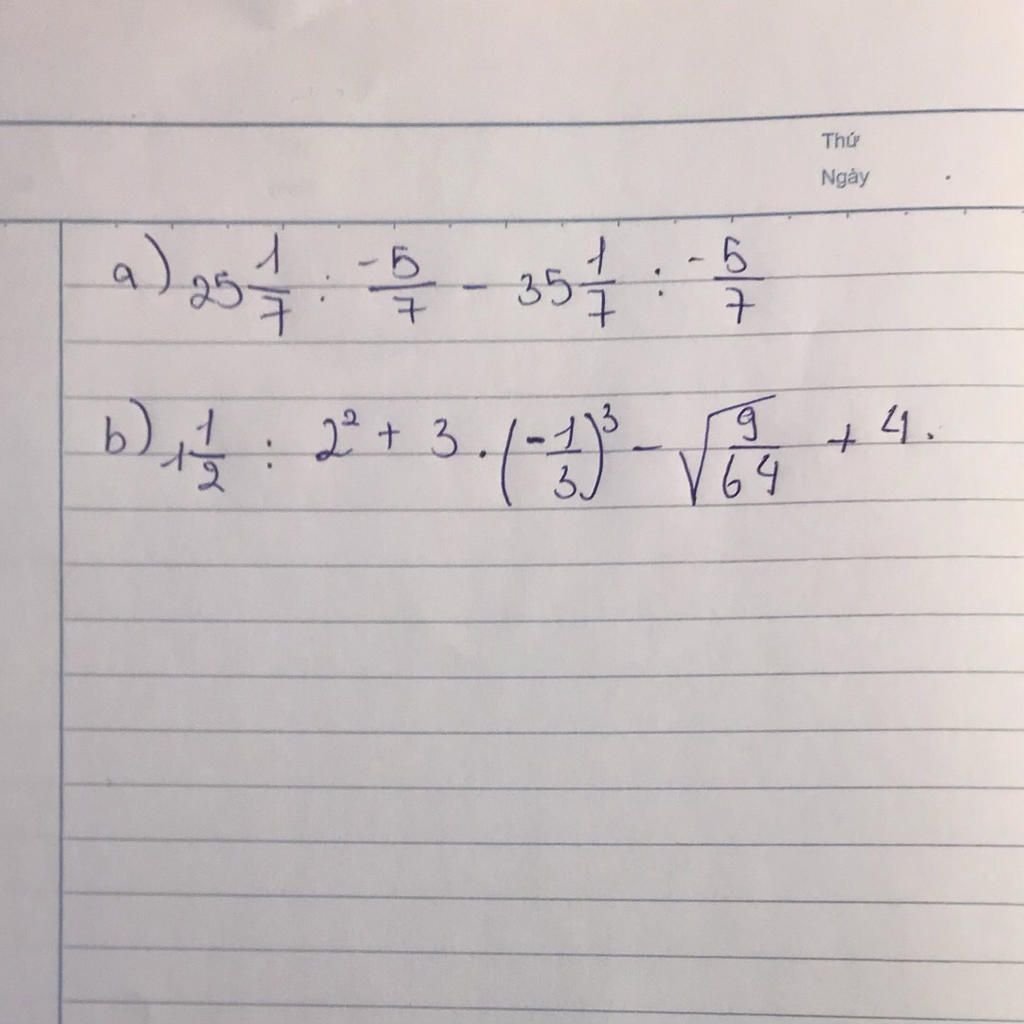 Thứ
Ngày
a) 25 1/7 : -5/7 - 35 1/7 : -5/7
b) 1 1/2 : 2² + 3 . (-1/3)³ - √(9/64) + 4.